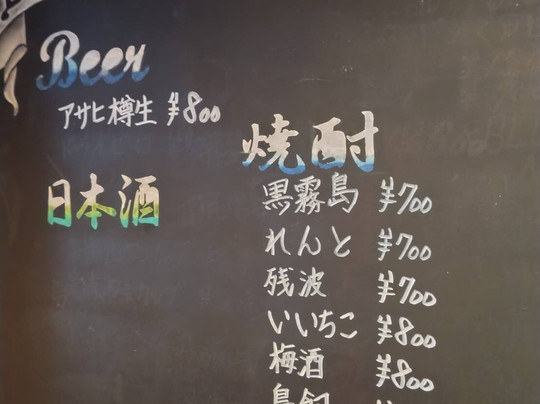 Beer
アサヒ樽生 ¥800
日本酒
焼酎
黒霧島 ¥700
れんと ¥700
残波 ¥700
いいちこ ¥800
梅酒 ¥800
鳥飼